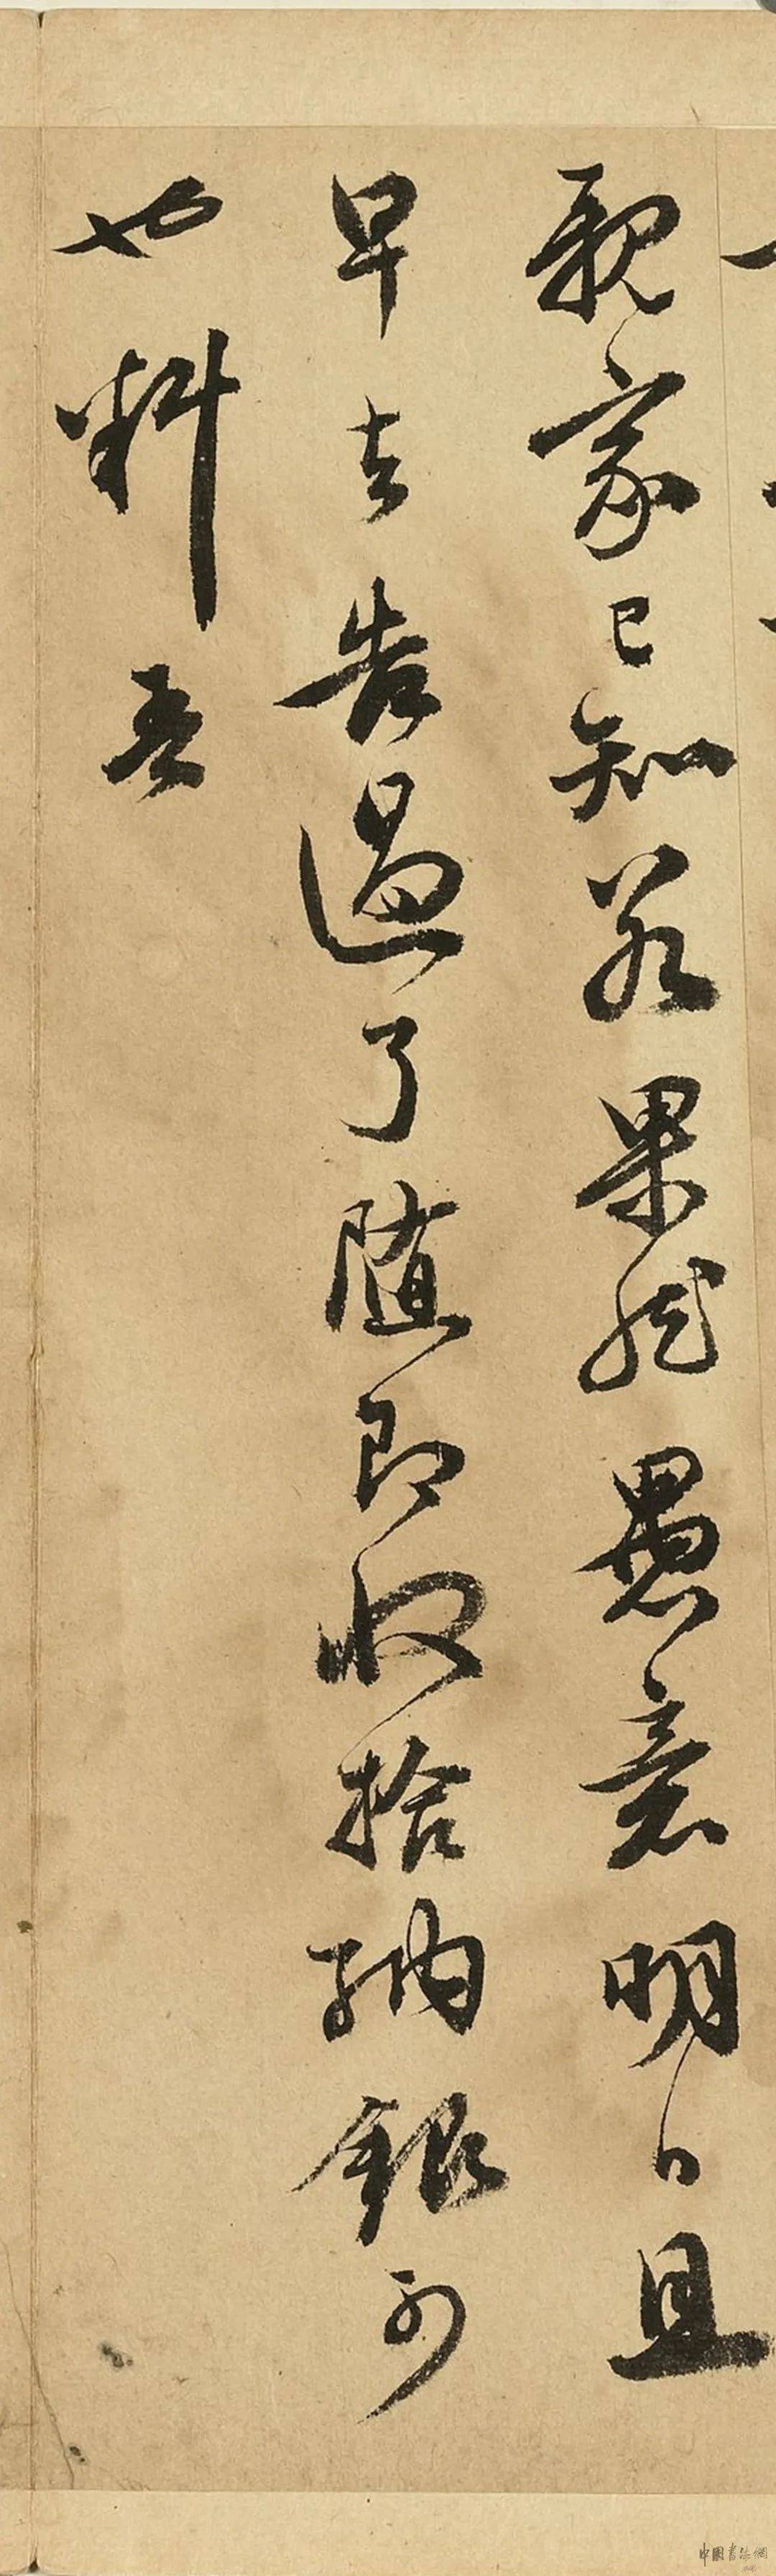 親家已知若果然愚意明日且
早去告過了隨即收拾納銀可
也料吾
中國書法網